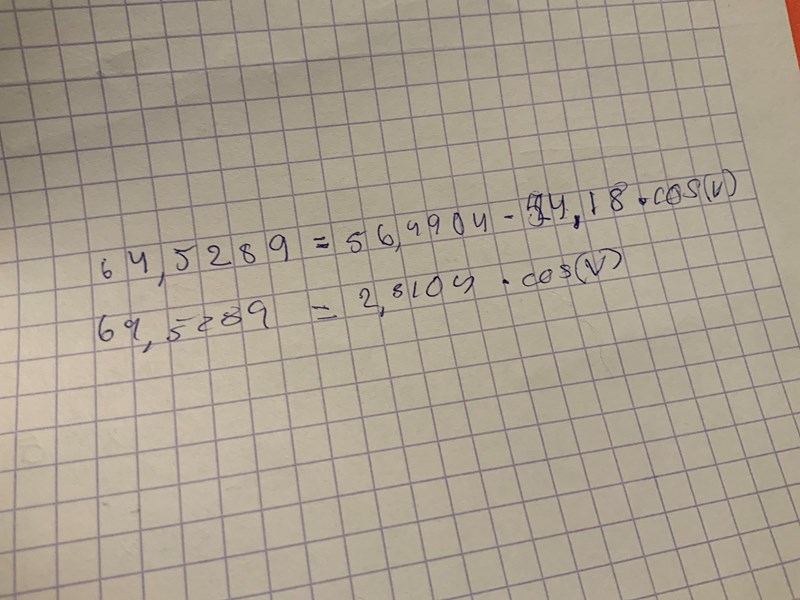 64,5289 = 56,4904 - 54,18 · cos(v)
64,5289 = 2,3104 · cos(v)